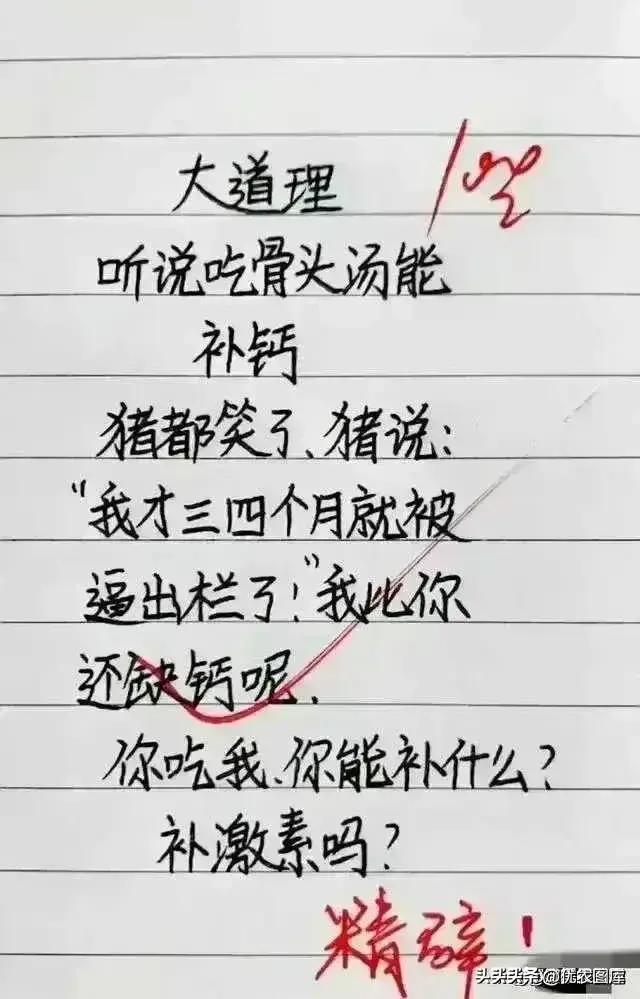 大道理
听说吃骨头汤能
补钙
猪都笑了、猪说：
“我才三四个月就被
逼出栏了！”我比你
还缺钙呢、
你吃我、你能补什么？
补激素吗？
精辟！